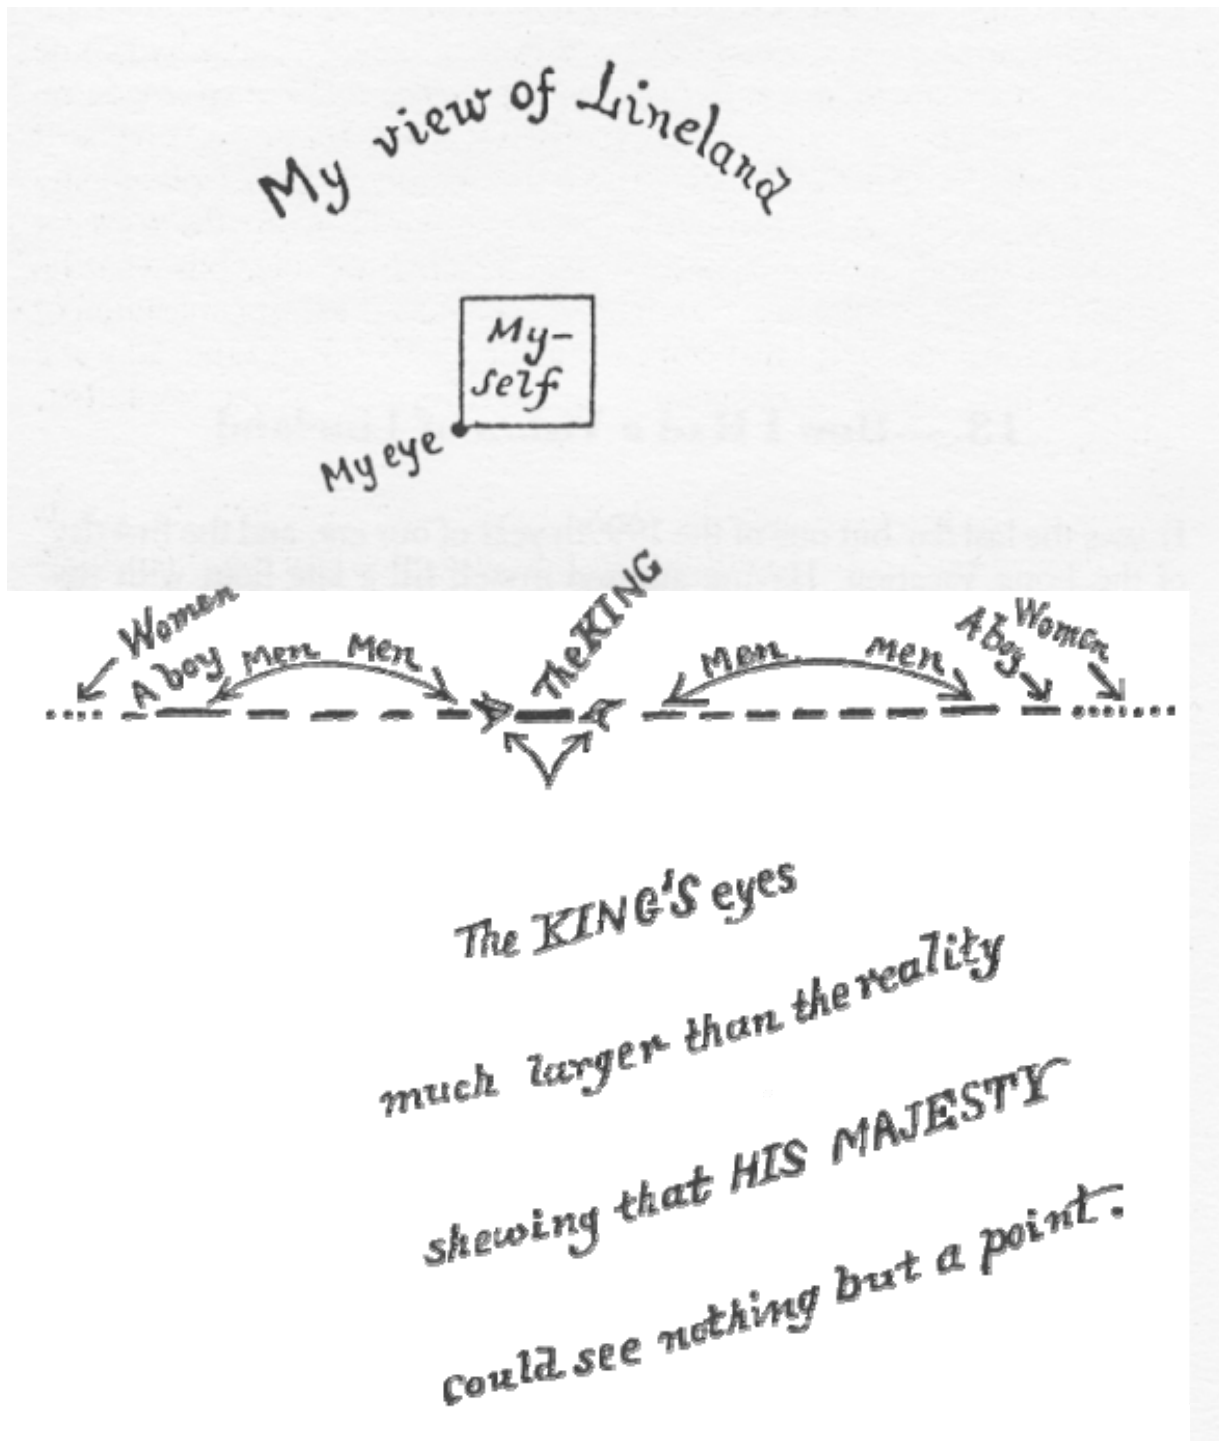 My view of Lineland
My-
self
My eye
Women
A boy
Men Men
The KING
Men Men
A boy
Women
The KING'S eyes
much larger than the reality
shewing that HIS MAJESTY
could see nothing but a point.